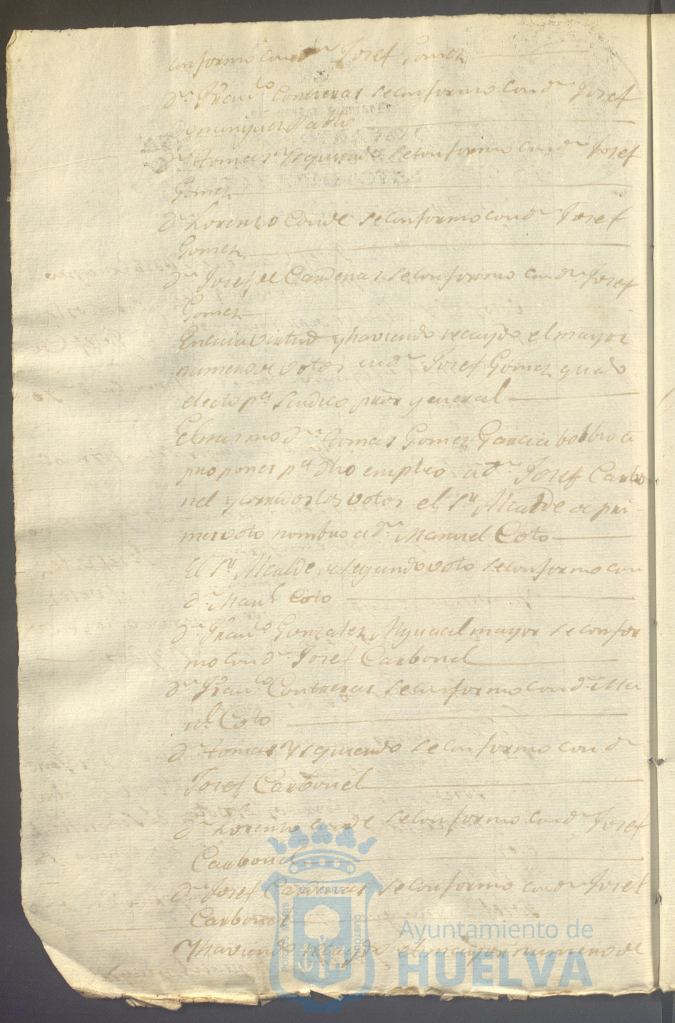 conformo con dn Josef Gomez
dn Franco Contreras se conformo con dn Josef
Dominguez Pablo
dn tomas Ysquierdo se conformo con dn Josef
Gomez
dn Lorenzo Conde se conformo con dn Josef
Gomez
dn Josef de Cardenas se conformo con dn Josef
Gomez
En cuia virtud y haviendo recaydo el mayor
numero de votos en dn Josef Gomez quedo
electo pa Sindico pror general
El mismo dn tomas Gomez Garcia bolbio a
proponer pa dho empleo a dn Josef Carbo
nel y corridos los votos el Sr Alcalde de pri
mer voto nombro a dn Manuel Coto
El Sr Alcalde de segundo voto se conformo con
dn Manl Coto
dn Franco Gonzalez Alguacil mayor se confor
mo con dn Josef Carbonel
dn Franco Contreras se conformo con dn Ma
nl Coto
dn tomas Ysquierdo se conformo con dn
Josef Carbonel
dn Lorenzo Conde se conformo con dn Josef
Carbonel
dn Josef Cardenas se conformo con dn Josef
Carbonel
Y haviendo recaydo el mayor numero de
Ayuntamiento de
HUELVA